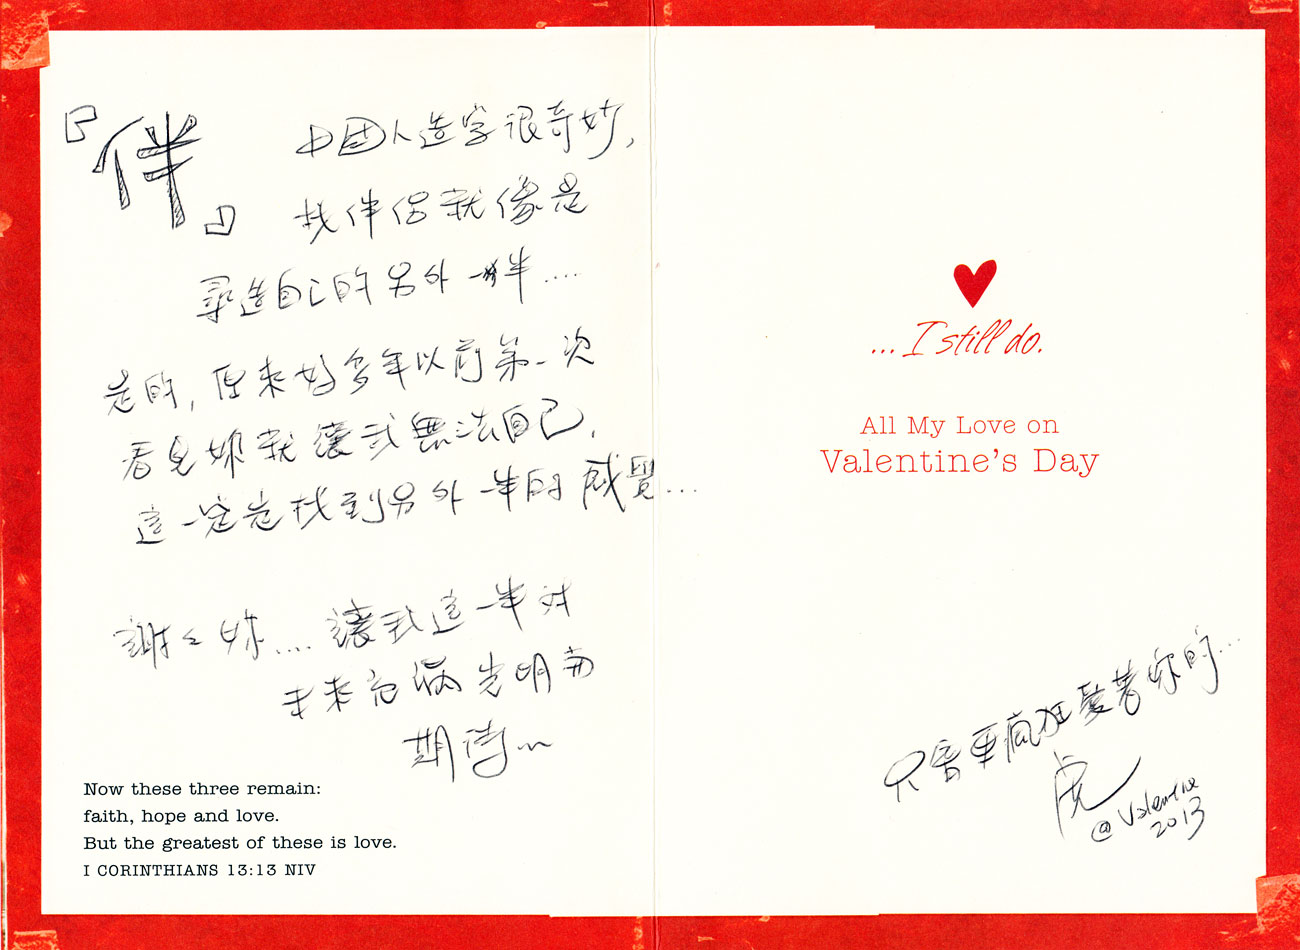 『伴』 中國人造字很奇妙,
找伴侶就像是
尋造自己的另外一半....
是的, 原來好多年以前第一次
看見妳就讓我無法自己.
這一定是找到另外一半的感覺...
謝謝妳.... 讓我這一半對
未來充滿光明與
期待~
Now these three remain:
faith, hope and love.
But the greatest of these is love.
I CORINTHIANS 13:13 NIV
...I still do.
All My Love on
Valentine's Day
只會更瘋狂愛著妳的...
虎
@ Valentine
2013